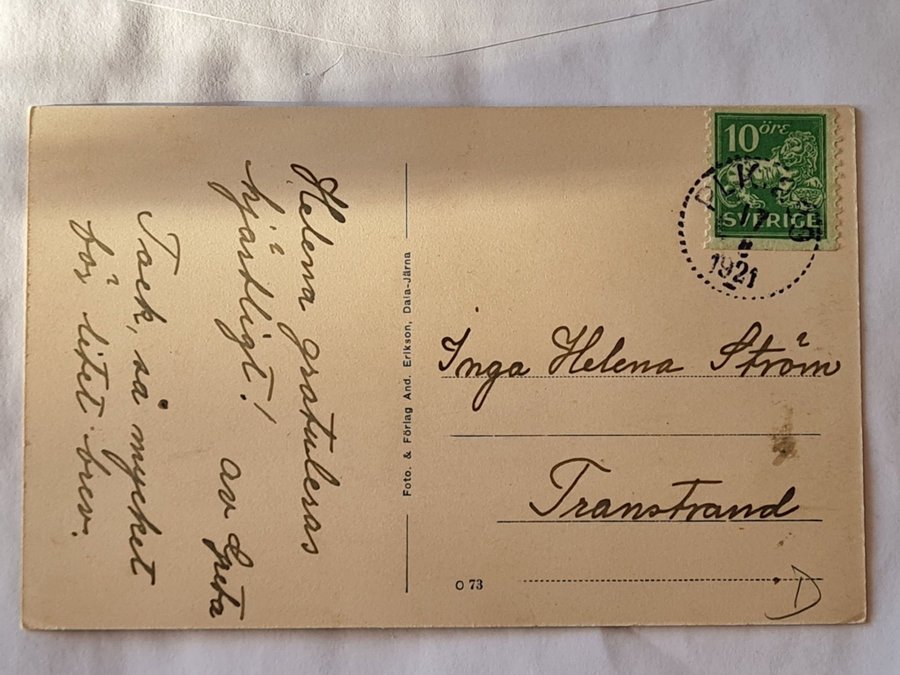 Helena gratuleras
hjärtligt! av Greta
Tack, så mycket
för litet brev.
Foto. & Förlag And. Erikson, Dala-Järna
10 öre
SVERIGE
17
8
1921
Inga Helena Ström
Transtrand
O 73
D